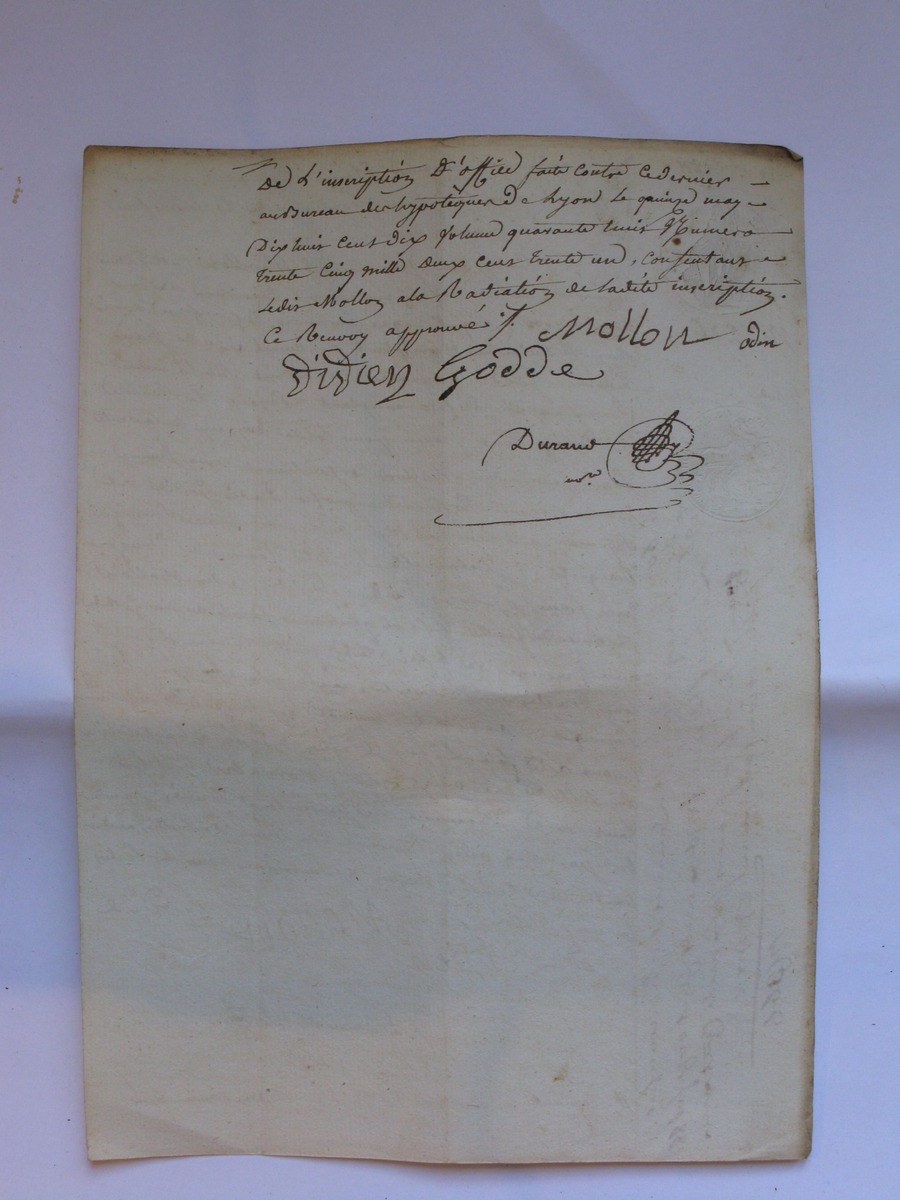 De L'inscription D'office faite contre ce dernier
au Bureau des hypoteques de Lyon le quinze may
Dix huit cent dix Volume quarante huit Numero
trente Cinq mille deux cent trente un, consentant
ledit Mollon a la Radiation de ladite inscription.
Ce Renvoy approuvé ./. Mollon odin
Didier Godde
Durand
no.re